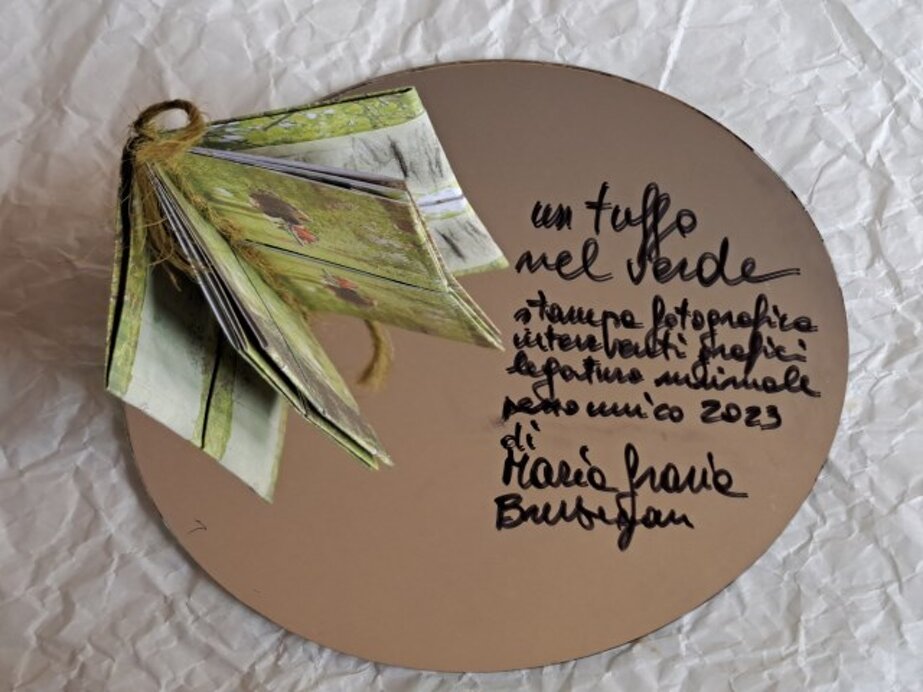 un tuffo
nel verde
stampa fotografica
interventi grafici
legatura minimale
pezzo unico 2023
di
Maria Grazia
Brusegan